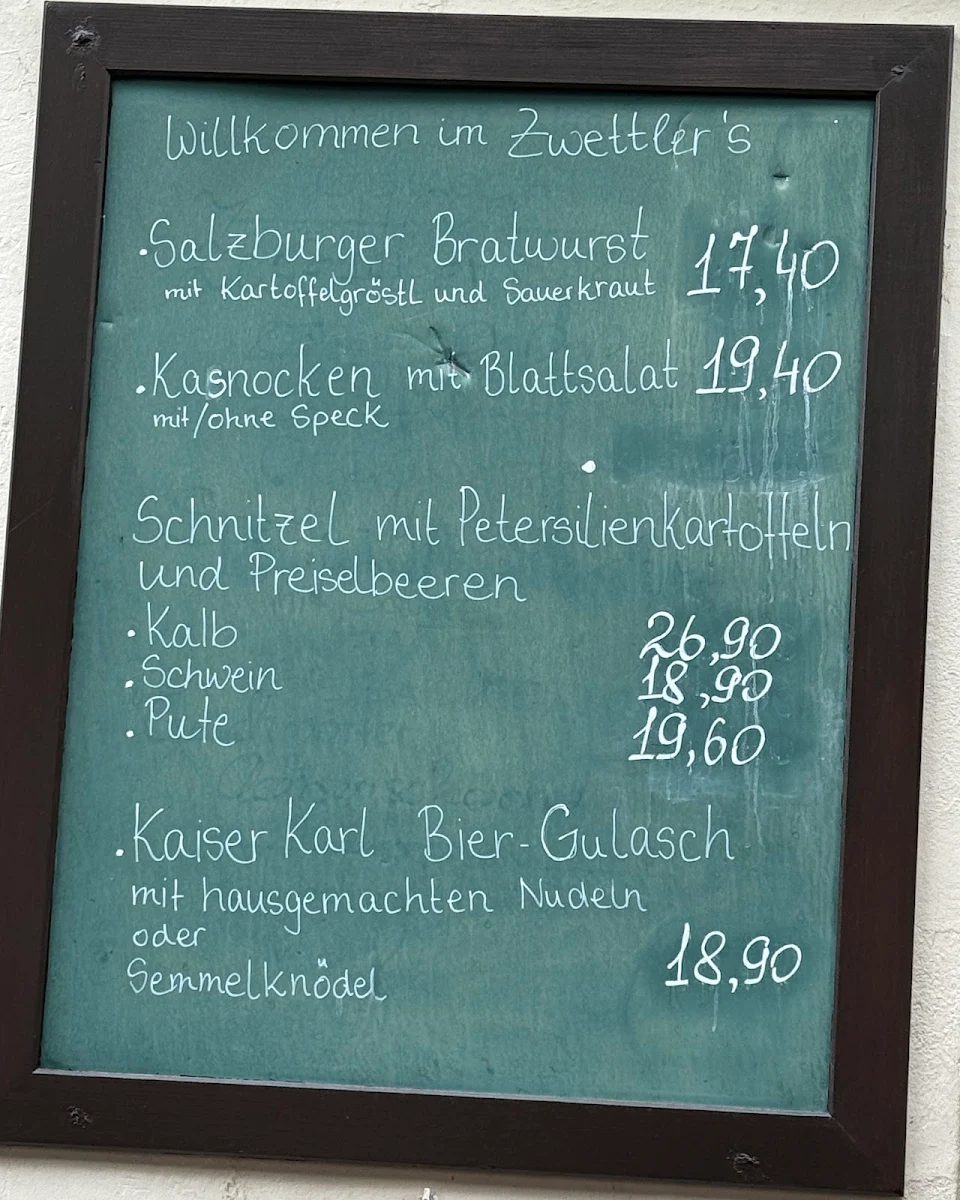 Willkommen im Zwettler's
·Salzburger Bratwurst 17,40
mit Kartoffelgröstl und Sauerkraut
·Kasnocken mit Blattsalat 19,40
mit/ohne Speck
Schnitzel mit Petersilienkartoffeln
und Preiselbeeren
·Kalb 26,90
·Schwein 18,90
·Pute 19,60
·Kaiser Karl Bier-Gulasch
mit hausgemachten Nudeln
oder 18,90
Semmelknödel